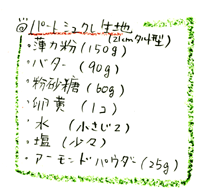 ◎パートシュクレ生地
(21cmタルト型)
・薄力粉(150g)
・バター(90g)
・粉砂糖(60g)
・卵黄(1コ)
・水(小さじ2)
・塩(少々)
・アーモンドパウダー(25g)